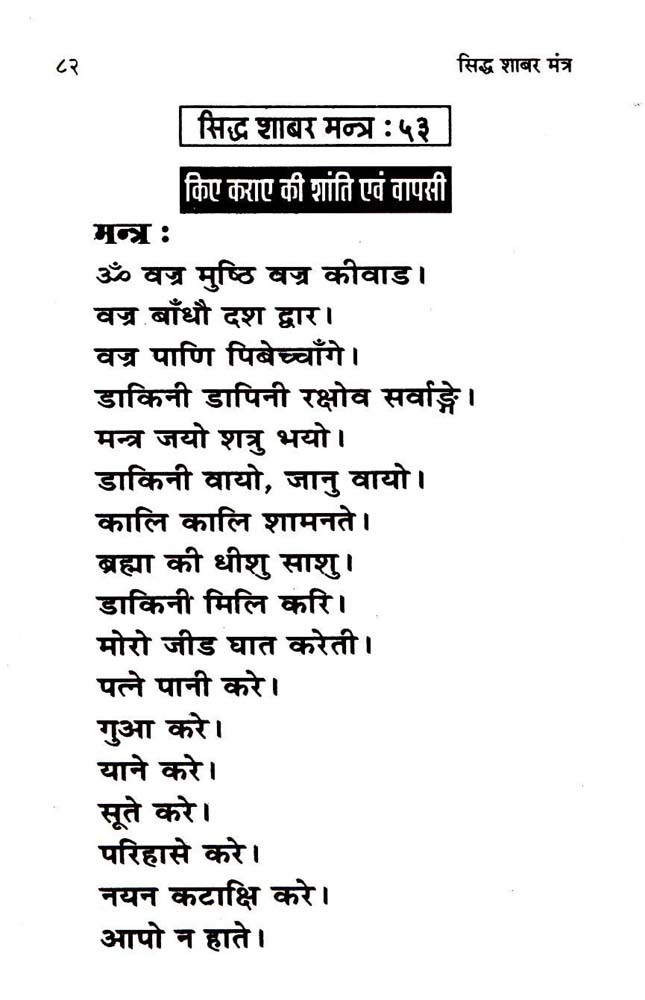 ८२ सिद्ध शाबर मंत्र
सिद्ध शाबर मन्त्र : ५३
किए कराए की शांति एवं वापसी
मन्त्र :
ॐ वज्र मुष्ठि वज्र कीवाड।
वज्र बाँधौ दश द्वार।
वज्र पाणि पिबेच्चाँगे।
डाकिनी डापिनी रक्षोव सर्वाङ्गे।
मन्त्र जयो शत्रु भयो।
डाकिनी वायो, जानु वायो।
कालि कालि शामनते।
ब्रह्मा की धीशु साशु।
डाकिनी मिलि करि।
मोरो जीड घात करेती।
पत्ने पानी करे।
गुआ करे।
याने करे।
सूते करे।
परिहासे करे।
नयन कटाक्षि करे।
आपो न हाते।